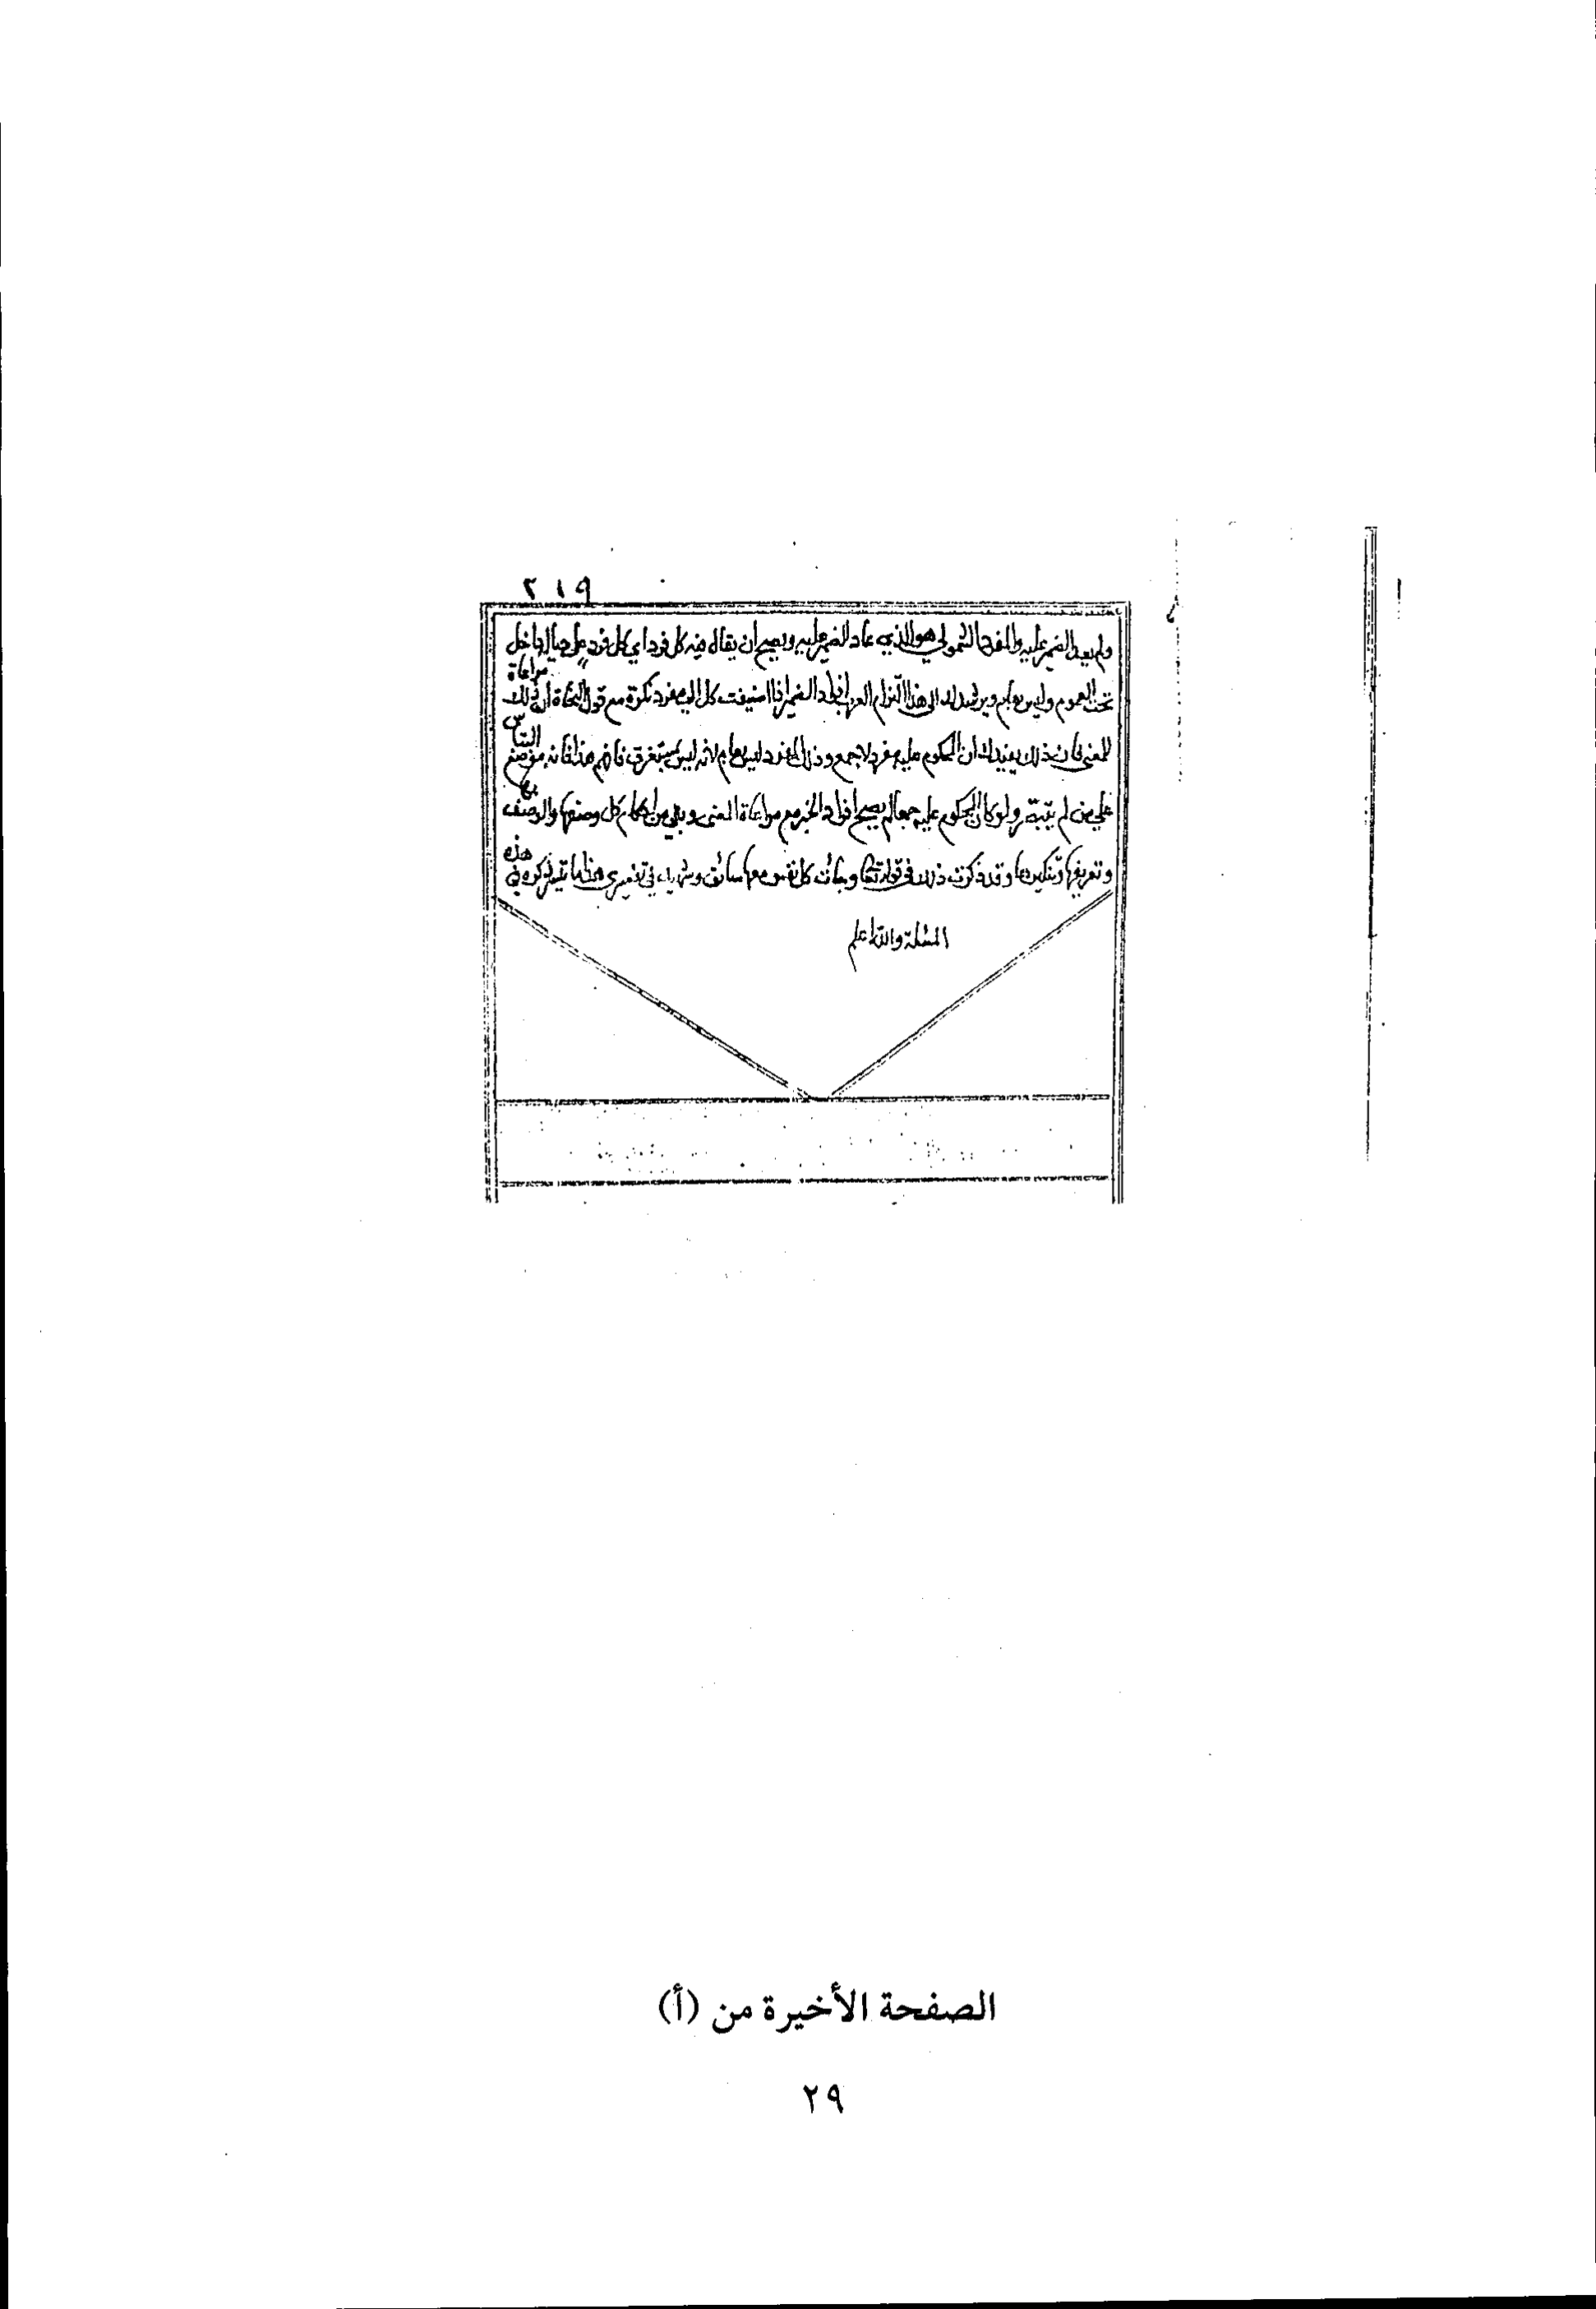 ٢١٩
ولم يعد الضمير عليه والمفرد الشمولي هو الذي عاد الضمير عليه ويصح ان يقال فيه كل فرد اي كل فرد على حياله داخل
تحت العموم وليس بعام ويرشدك الى هذا التزام العرب افراد الضمير اذا اضيفت كل الى مفرد نكرة مع قول النحاة ان ذلك مراعاة
للمعنى فان ذلك يفيدك ان المحكوم عليه مفرد لا جمع وذلك المفرد ليس بعام لانه ليس بمستغرق فافهم هذا فانه موضع التباس
على من لم يتبصر ولو كان المحكوم عليه جمعا لم يصح افراد الخبر مع مراعاة المعنى وبقي من احكام كل وصفها والوصف بها
وتعريفها وتنكيرها وقد ذكرت ذلك في قوله تعالى وجائت كل نفس معها سائق وشهيد في تفسيري هذا ما تيسر ذكره في هذه
المسئلة والله اعلم
الصفحة الأخيرة من (أ)
٢٩